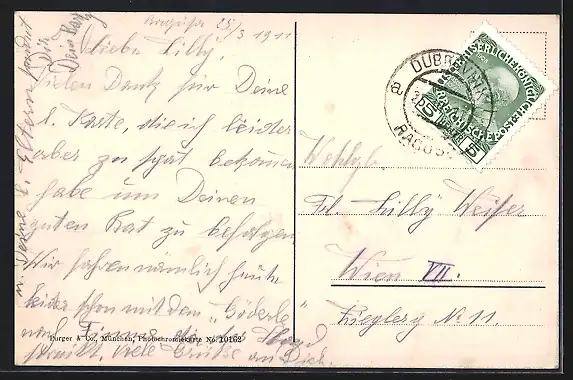 Ragusa 25/3 1911
Liebe Lilly,
Vielen Dank für Deine
l. Karte, die ich leider
aber zu spät bekommen
habe um Deinen
guten Rat zu befolgen
Wir fahren nämlich heute
leider schon mit dem "Gödöllö"
nach Fiume
viele Grüße an Dich.
Dein Karl
Eltern
Purger & Co., München, Photochromiekarte No. 10162
DUBROVNIK
a
RAGUSA
5
5
Frl. Lilly Weiser
Wien VII.
Zieglerg No 11.